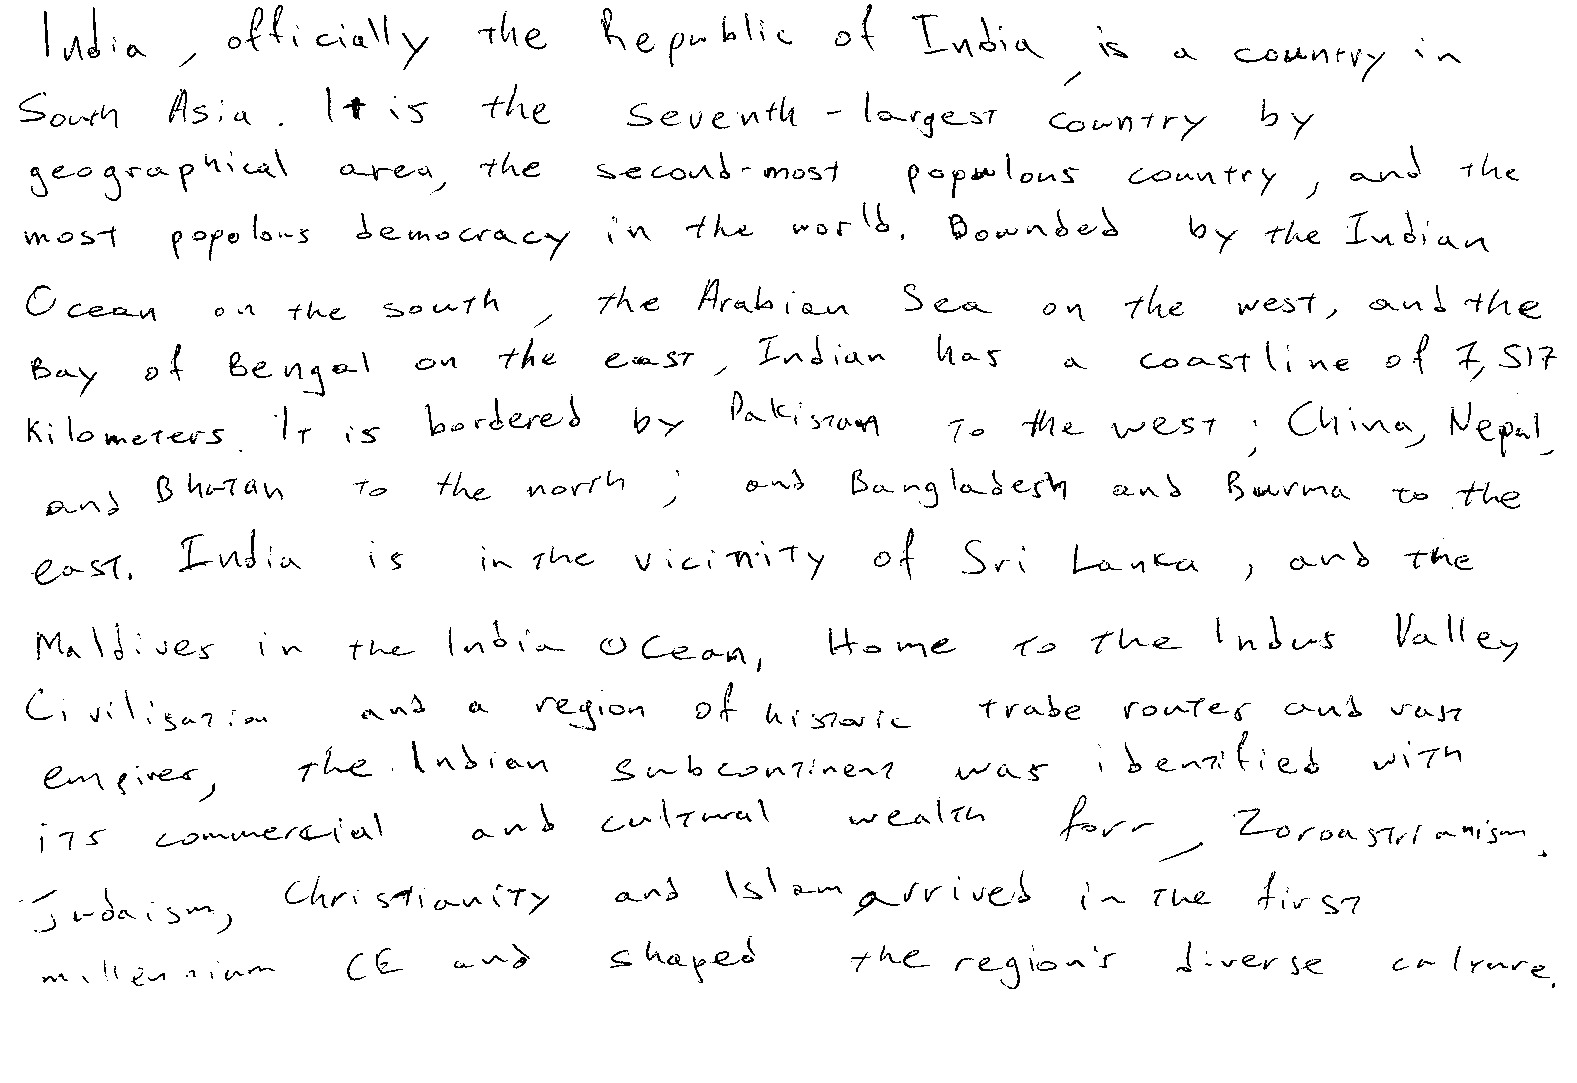 India, officially the Republic of India, is a country in
South Asia. It is the seventh-largest country by
geographical area, the second-most populous country, and the
most populous democracy in the world. Bounded by the Indian
Ocean on the south, the Arabian Sea on the west, and the
Bay of Bengal on the east, Indian has a coastline of 7,517
kilometers. It is bordered by Pakistan to the west; China, Nepal,
and Bhutan to the north; and Bangladesh and Burma to the
east. India is in the vicinity of Sri Lanka, and the
Maldives in the India Ocean, Home to the Indus Valley
Civilisation and a region of historic trade routes and vast
empires, the Indian subcontinent was identified with
its commercial and cultural wealth for, Zoroastrianism,
Judaism, Christianity and Islam arrived in the first
millennium CE and shaped the region's diverse culture.